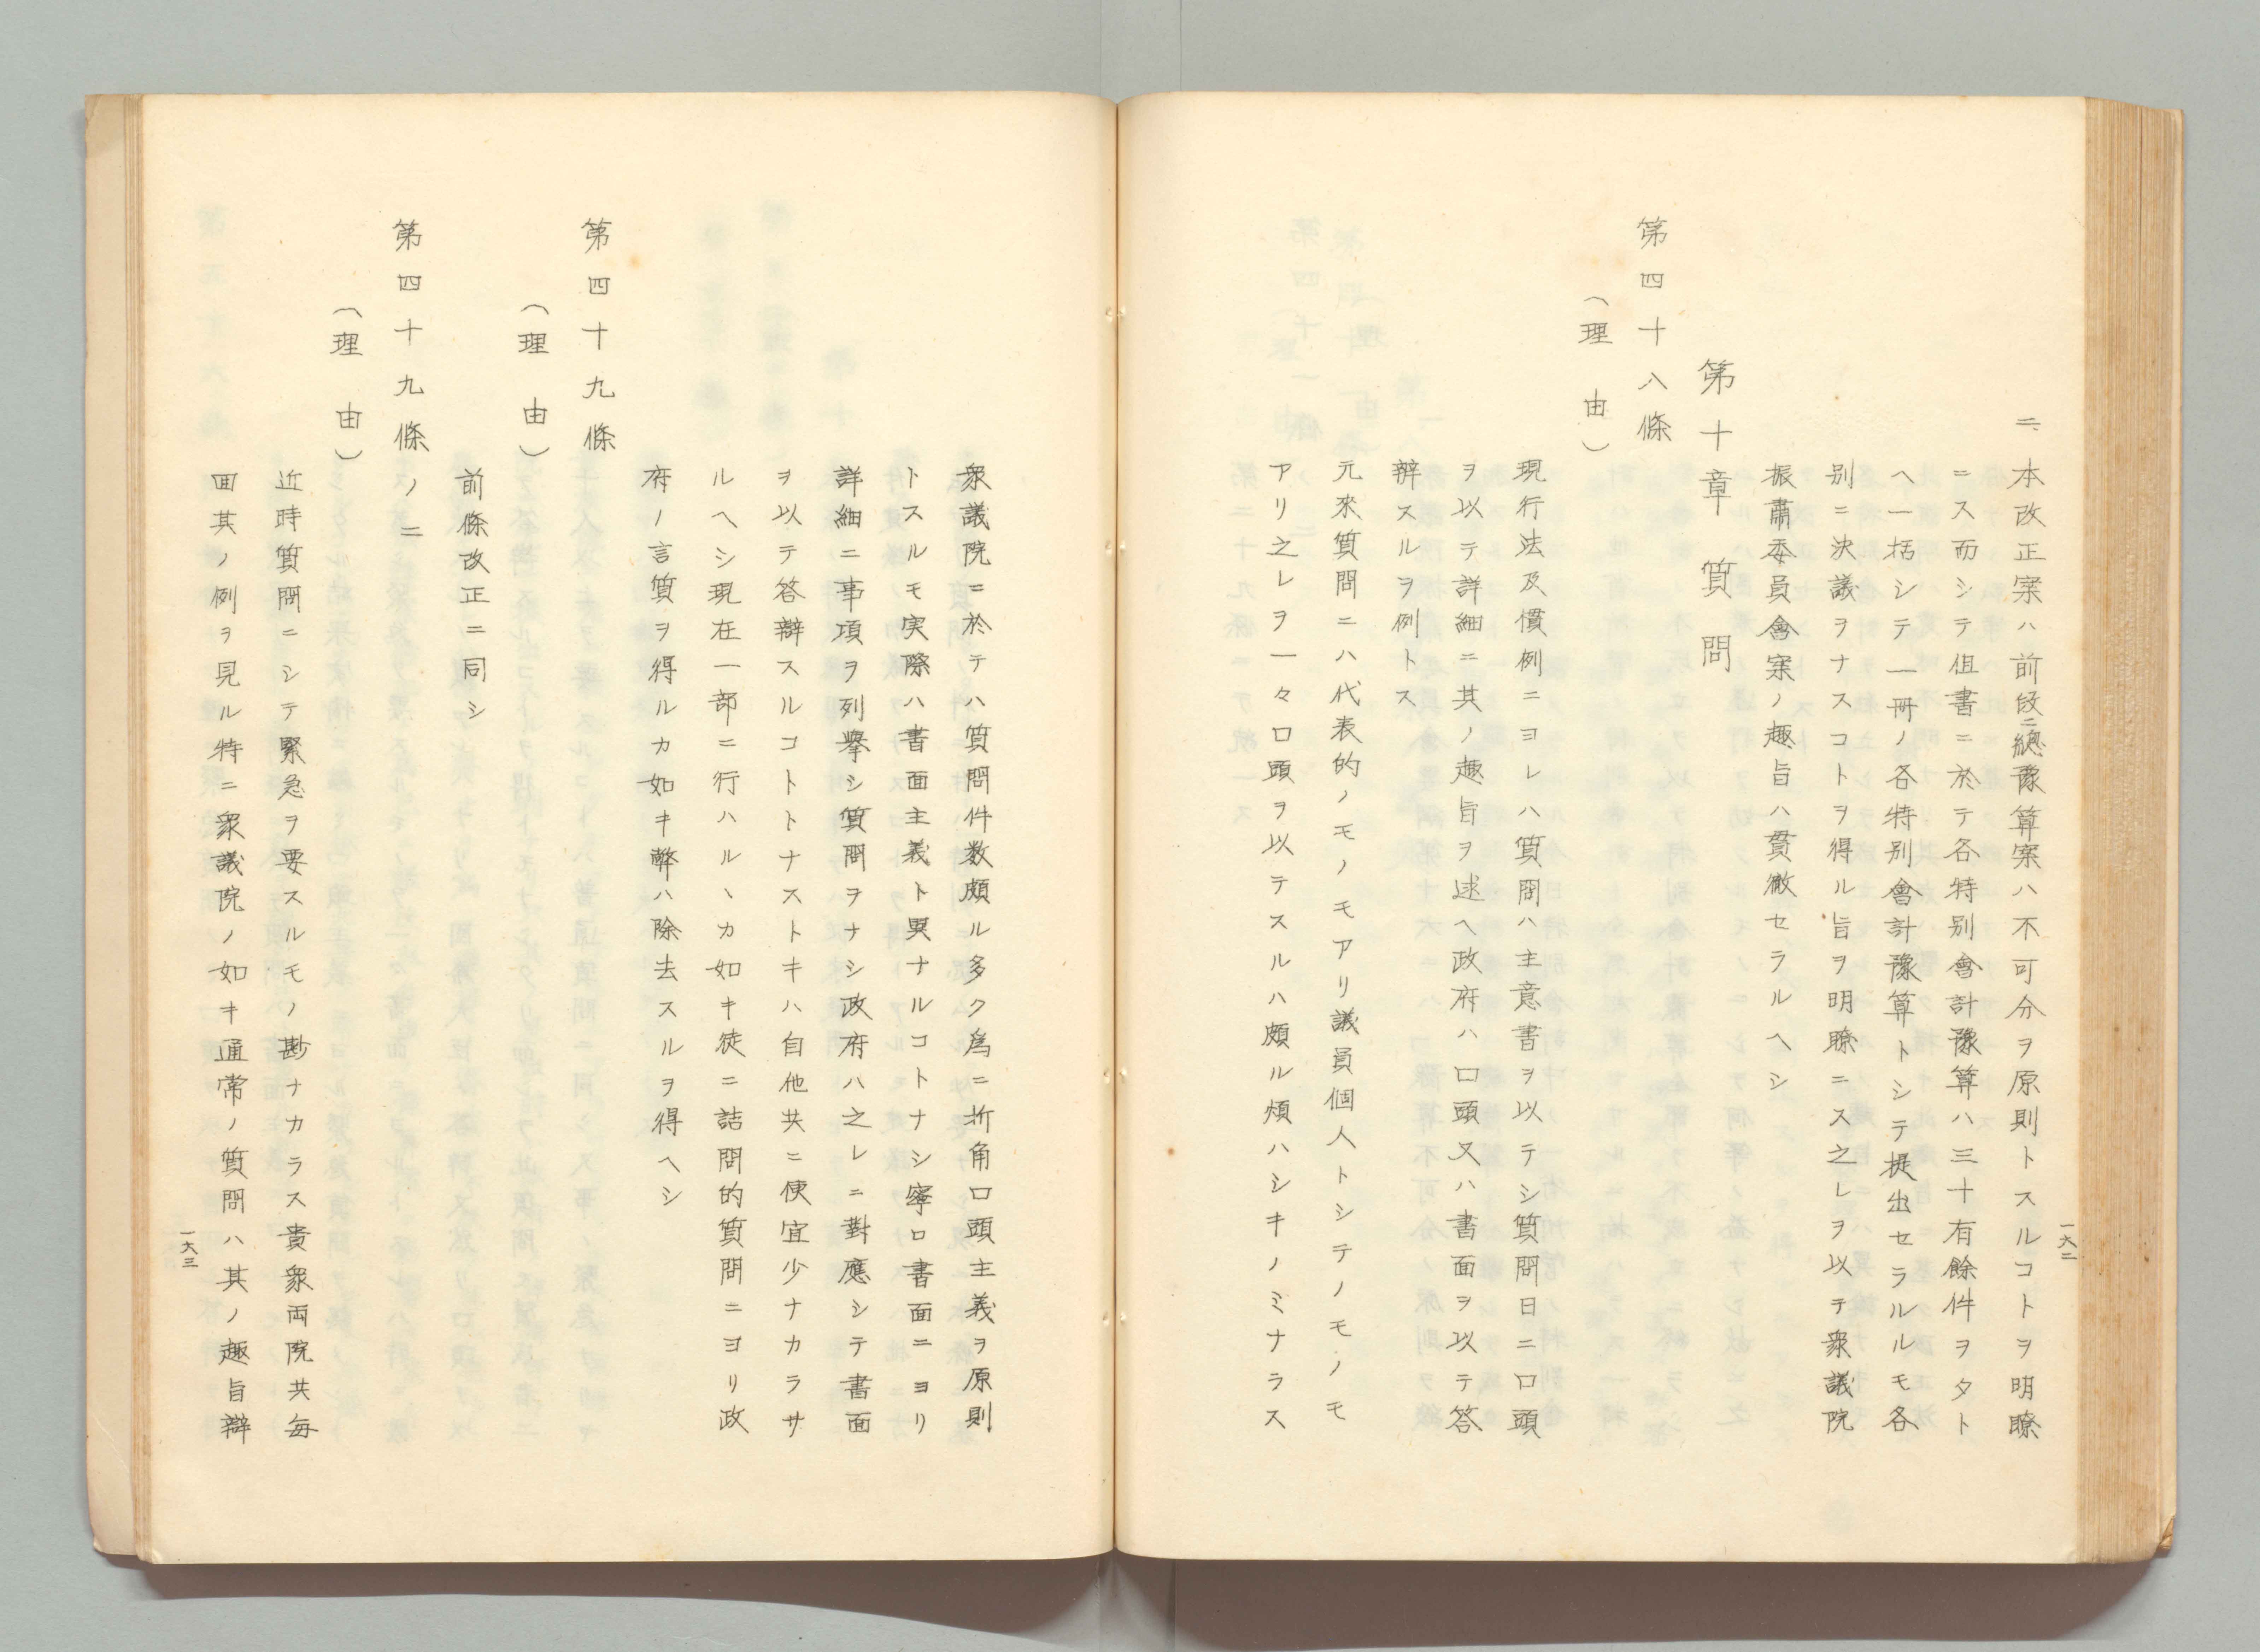 二、本改正案ハ前段ニ總豫算案ハ不可分ヲ原則トスルコトヲ明瞭
ニス而シテ但書ニ於テ各特別會計豫算ハ三十有餘件ヲタト
ヘ一括シテ一冊ノ各特別會計豫算トシテ提出セラルルモ各
別ニ決議ヲナスコトヲ得ル旨ヲ明瞭ニス之レヲ以テ衆議院
振肅委員會案ノ趣旨ハ貫徹セラルヘシ
第十章 質問
第四十八條
(理由)
現行法及慣例ニヨレハ質問ハ主意書ヲ以テシ質問日ニ口頭
ヲ以テ詳細ニ其ノ趣旨ヲ述ヘ政府ハ口頭又ハ書面ヲ以テ答
辨スルヲ例トス
元來質問ニハ代表的ノモノモアリ議員個人トシテノモノモ
アリ之レヲ一々口頭ヲ以テスルハ頗ル煩ハシキノミナラス
一六二
衆議院ニ於テハ質問件数頗ル多ク爲ニ折角口頭主義ヲ原則
トスルモ実際ハ書面主義ト異ナルコトナシ寧ロ書面ニヨリ
詳細ニ事項ヲ列擧シ質問ヲナシ政府ハ之レニ對應シテ書面
ヲ以テ答辯スルコトトナストキハ自他共ニ便宜少ナカラサ
ルヘシ現在一部ニ行ハルヽカ如キ徒ニ詰問的質問ニヨリ政
府ノ言質ヲ得ルカ如キ弊ハ除去スルヲ得ヘシ
第四十九條
(理由)
前條改正ニ同シ
第四十九條ノ二
(理由)
近時質問ニシテ緊急ヲ要スルモノ尠ナカラス貴衆両院共毎
回其ノ例ヲ見ル特ニ衆議院ノ如キ通常ノ質問ハ其ノ趣旨辯
一六三